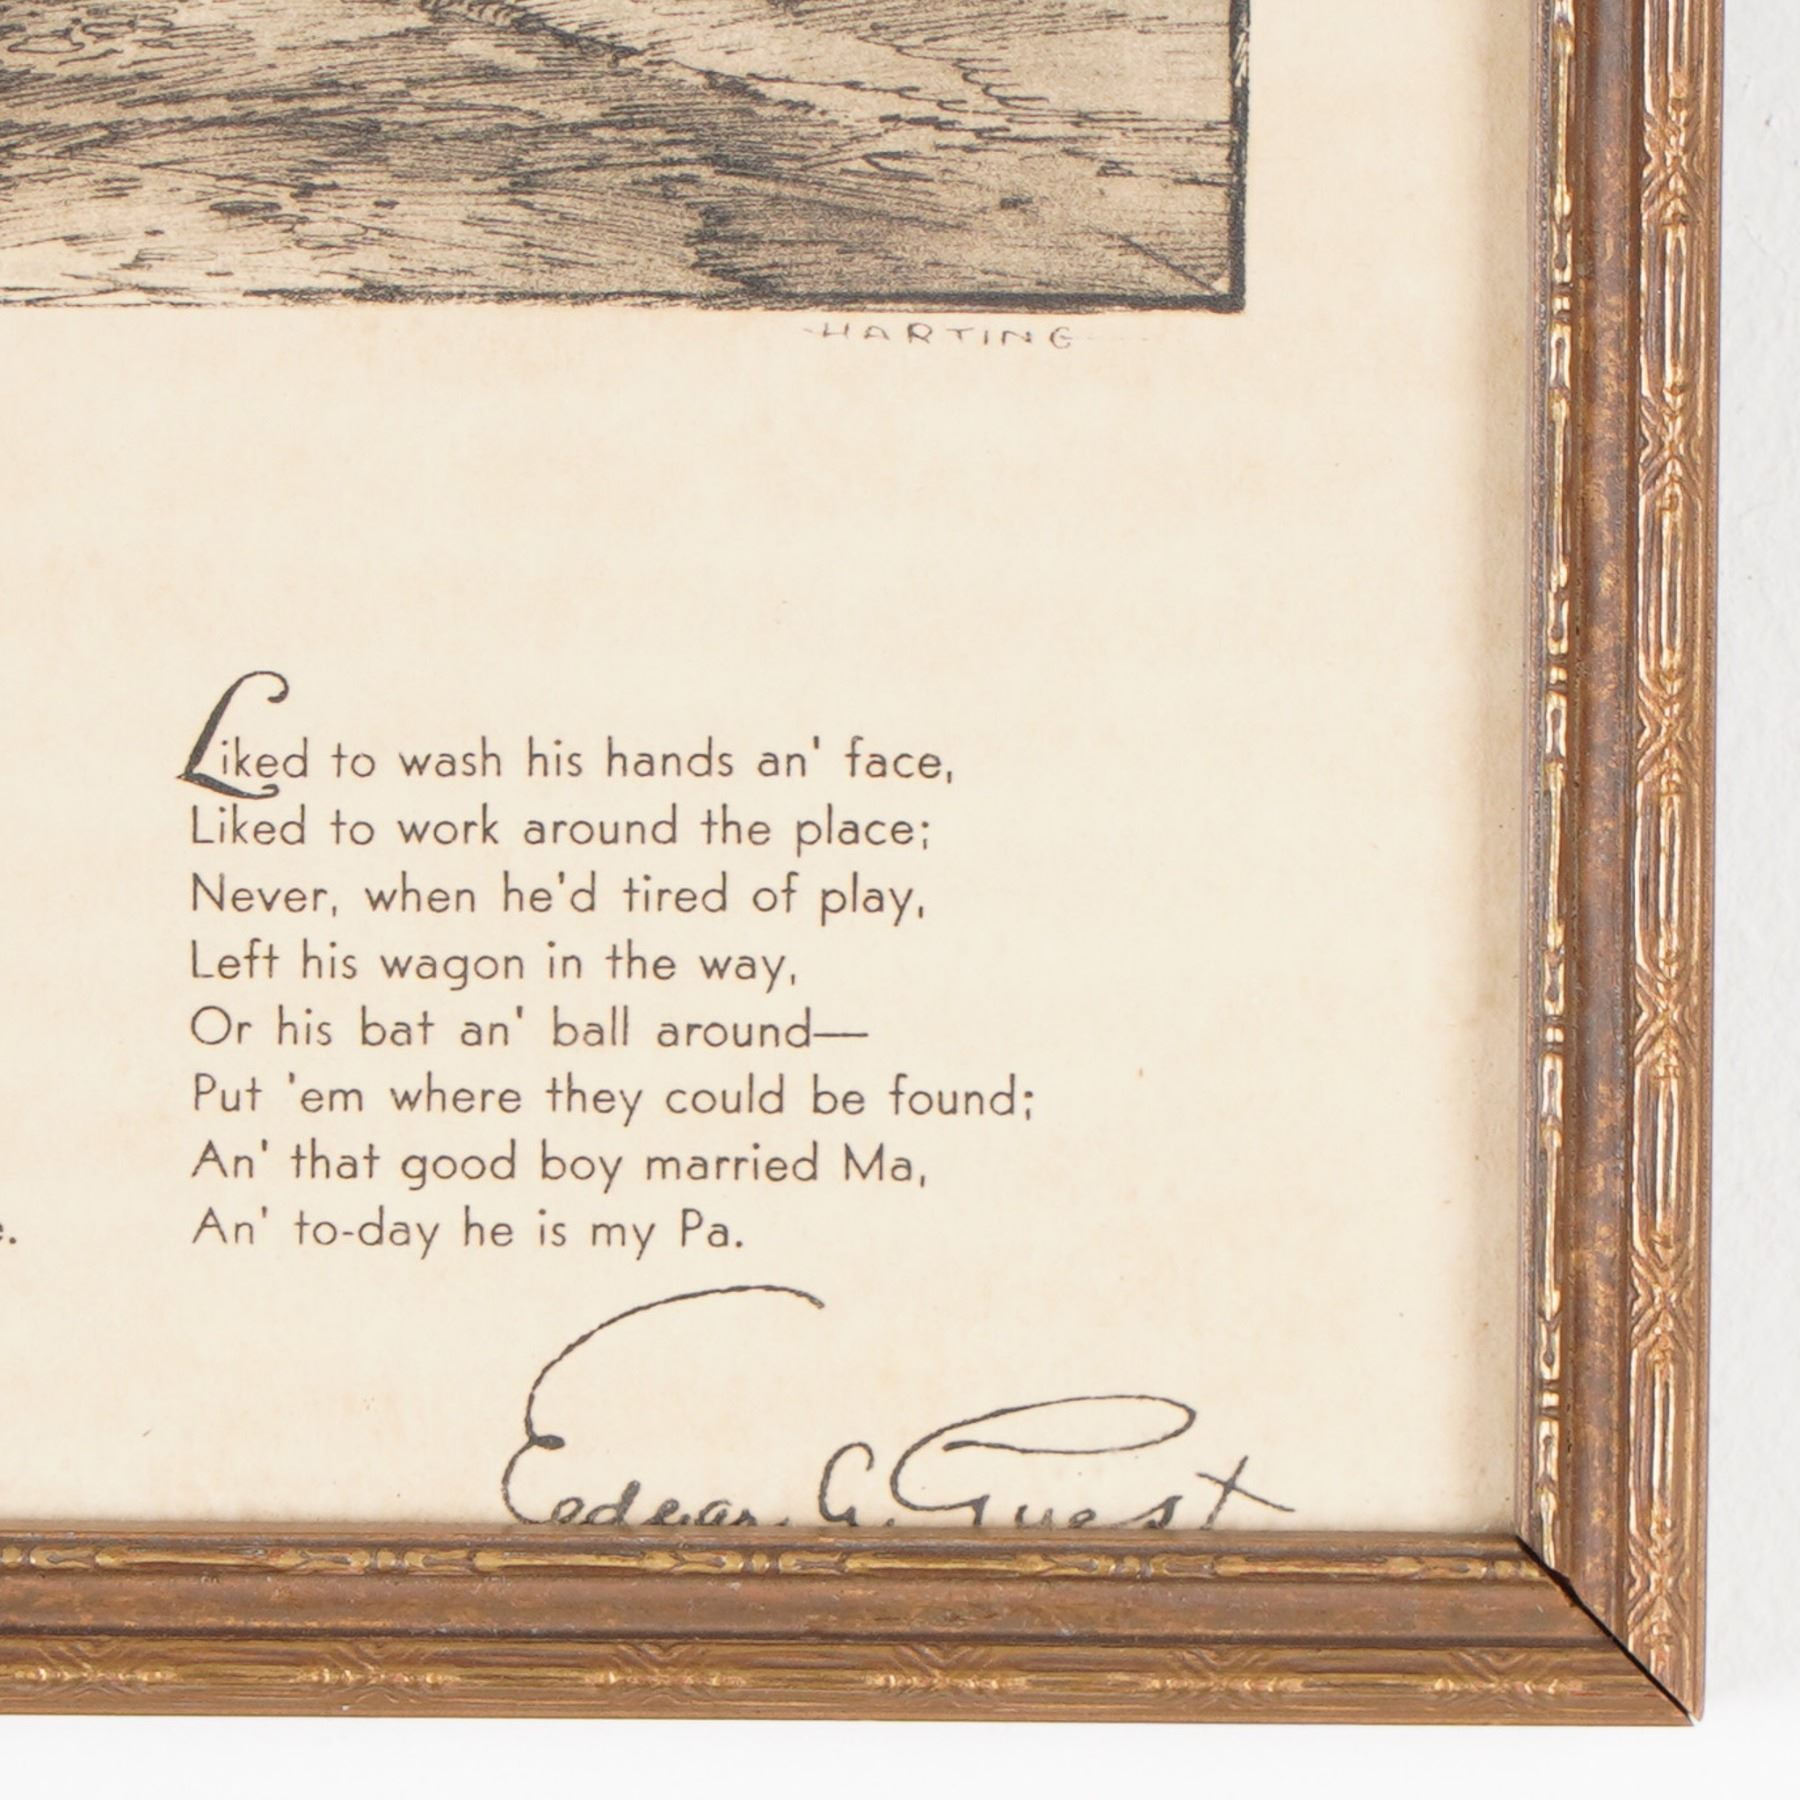 HARTING
Liked to wash his hands an' face,
Liked to work around the place;
Never, when he'd tired of play,
Left his wagon in the way,
Or his bat an' ball around—
Put 'em where they could be found;
An' that good boy married Ma,
e. An' to-day he is my Pa.
Edgar A. Guest